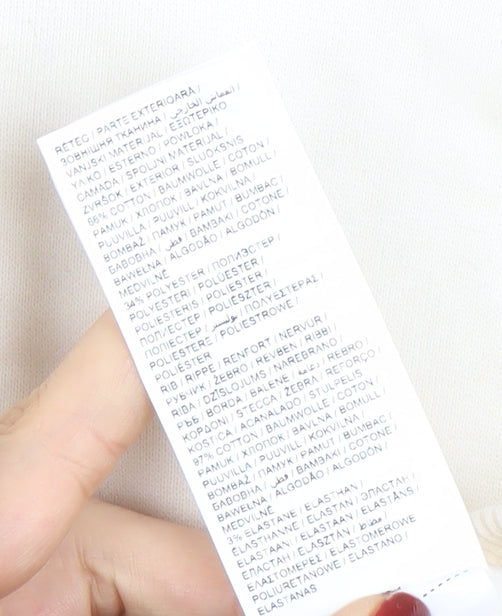 RÉTEG / PARTE EXTERIOARĂ /
ЗОВНІШНЯ ТКАНИНА / القماش الخارجي /
VANJSKI MATERIJAL / ΕΞΩΤΕΡΙΚΟ
ΥΛΙΚΟ / ESTERNO / POWŁOKA /
CAMADA / SPOLJNI MATERIJAL /
ZVRŠOK / EXTERIOR / SLUOKSNIS
66% COTTON / BAUMWOLLE / COTON /
PAMUK / ХЛОПОК / BAVLNA / BOMULL /
PUUVILLA / PUUVILL / KOKVILNA /
BOMBAŽ / ПАМУК / PAMUT / BUMBAC /
БАВОВНА / قطن / ΒΑΜΒΑΚΙ / COTONE /
BAWEŁNA / ALGODÃO / ALGODÓN /
MEDVILNĖ
34% POLYESTER / ПОЛИЭСТЕР /
POLYESTERI / POLÜESTER /
POLIESTERIS / POLIESTER /
ПОЛИЕСТЕР / POLIÉSZTER /
ПОЛІЕСТЕР / بوليستر / ΠΟΛΥΕΣΤΕΡΑΣ /
POLIESTERE / POLIESTROWE /
POLIÉSTER
RIB / RIPPE / RENFORT / NERVÜR /
РУБЧИК / ŽEBRO / REVBEN / RIBBI /
RIBA / DZĪSLOJUMS / NAREBRANO /
РЪБ / BORDA / BALENE / دعامة / REBRO /
ΚΟΡΔΟΝΙ / STECCA / ŻEBRA / REFORÇO /
KOSTICA / ACANALADO / STULPELIS
97% COTTON / BAUMWOLLE / COTON /
PAMUK / ХЛОПОК / BAVLNA / BOMULL /
PUUVILLA / PUUVILL / KOKVILNA /
BOMBAŽ / ПАМУК / PAMUT / BUMBAC /
БАВОВНА / قطن / ΒΑΜΒΑΚΙ / COTONE /
BAWEŁNA / ALGODÃO / ALGODÓN /
MEDVILNĖ
3% ELASTANE / ELASTHAN /
ÉLASTHANNE / ELASTAN / ЭЛАСТАН /
ELASTAANI / ELASTAAN / ELASTĀNS /
ЕЛАСТАН / ELASZTÁN / مطاط /
ΕΛΑΣΤΟΜΕΡΕΣ / ELASTOMEROWE
POLIURETANOWE / ELASTANO /
ELASTANAS